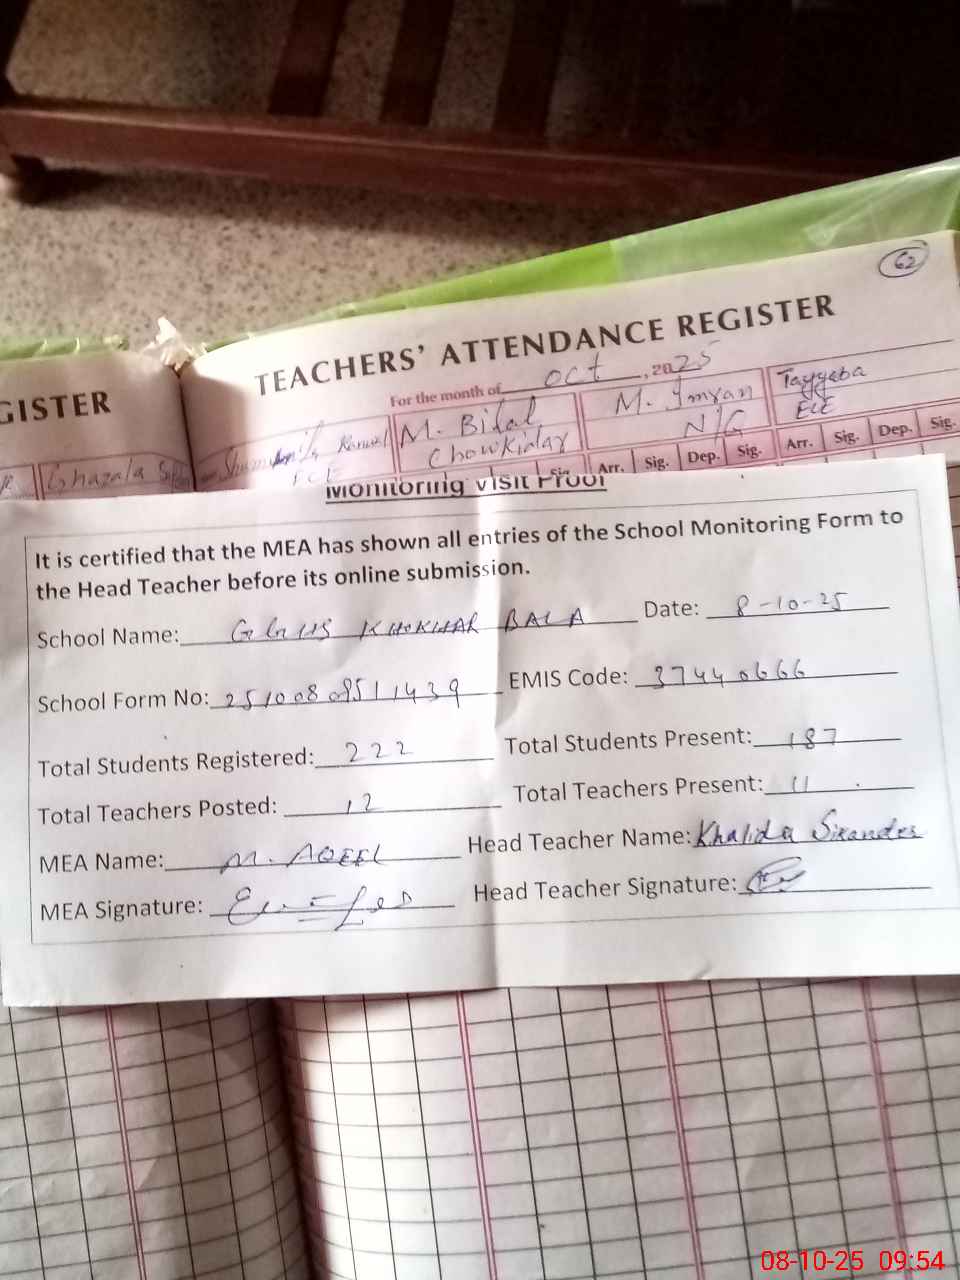 62
TEACHERS' ATTENDANCE REGISTER
GISTER
For the month of Oct, 2025
Ghazala
Kanwal
M. Bilal
Chowkidar
M. Imran
N/Q
Tayyaba
ECE
Arr. Sig. Dep. Sig. Arr. Sig. Dep. Sig.
Monitoring Visit Proof
It is certified that the MEA has shown all entries of the School Monitoring Form to
the Head Teacher before its online submission.
School Name: KHOKHAR BALA Date: 8-10-25
School Form No: EMIS Code: 37440666
Total Students Registered: 222 Total Students Present: 187
Total Teachers Posted: 12 Total Teachers Present: 11
MEA Name: M. AQEEL Head Teacher Name: Khalida Sikander
MEA Signature: Head Teacher Signature:
08-10-25 09:54